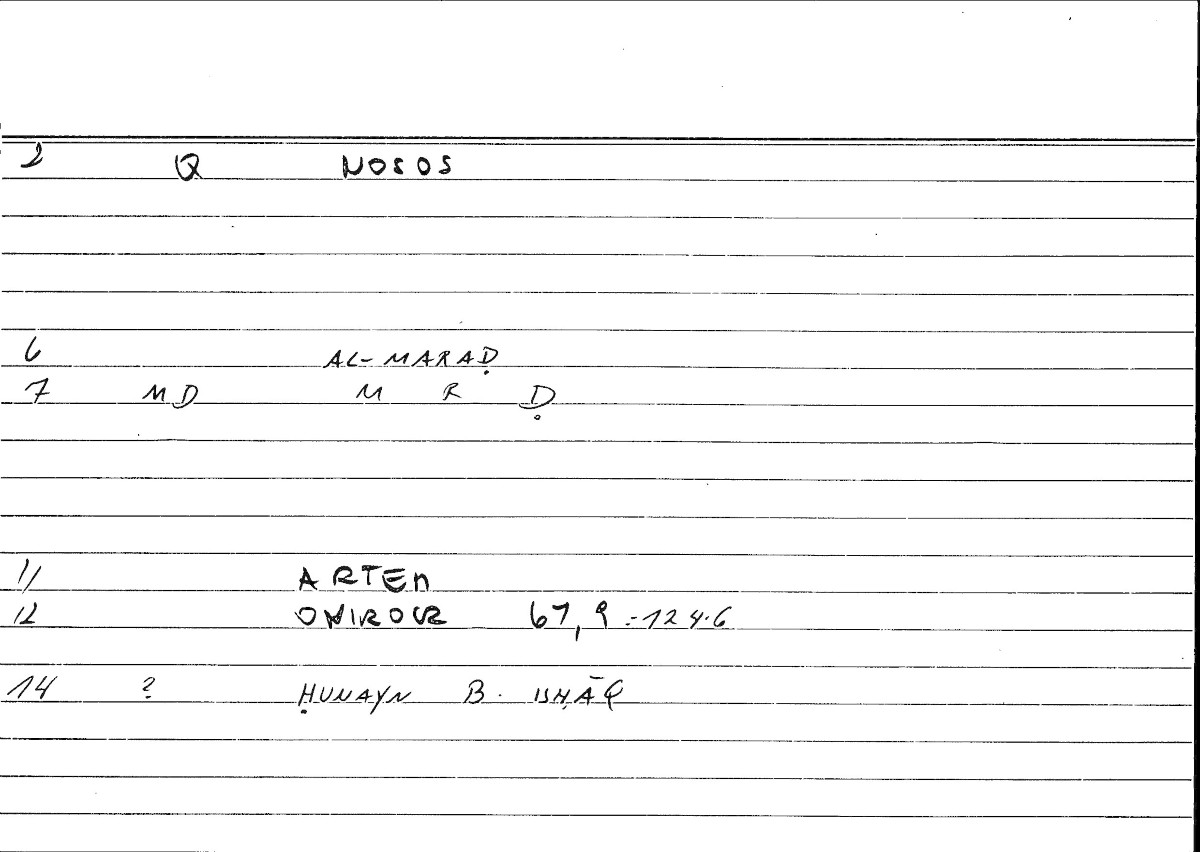 2 Q NOSOS
6 AL-MARAḌ
7 MD M R Ḍ
11 ARTEM
12 ONIROCR 67,9 = 124.6
14 ? ḤUNAYN B. ISḤĀQ